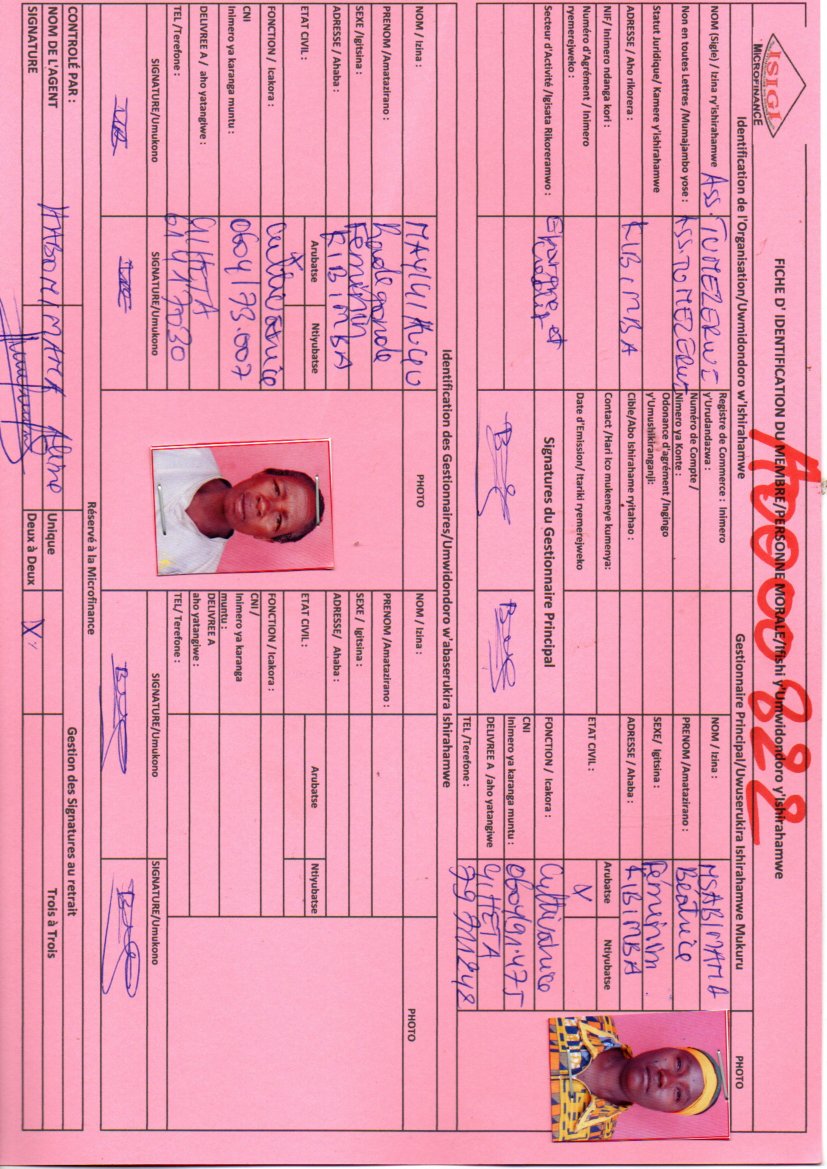 ISIGI
MICROFINANCE
FICHE D' IDENTIFICATION DU MEMBRE/PERSONNE MORALE/Ifishi y'Umwidondoro y'Ishirahamwe
A0000822
Identification de l'Organisation/Uwmidondoro w'Ishirahamwe
Gestionnaire Principal/Uwuserukira Ishirahamwe Mukuru
PHOTO
NOM (Sigle) / Izina ry'ishirahamwe
ASS. TUMEZERWE
Non en toutes Lettres /Mumajambo yose :
ASS. TUMEZERWE
Statut Juridique/ Kamere y'ishirahamwe
ADRESSE / Aho rikorera :
KIBIMBA
NIF/ Inimero ndanga kori :
Numéro d'Agrément / Inimero
ryemerejweko :
Secteur d'Activité /Igisata Rikoreramwo :
Epargne et
crédit
Registre de Commerce : Inimero
y'Urudandazwa :
Numéro de Compte /
Nimero ya Konte :
Odonance d'agrément /Ingingo
y'Umushikiranganji:
Cible/Abo Ishirahame ryitahao :
Contact /Hari ico mukeneye kumenya:
Date d'Emission/ Itariki ryemerejweko
Signatures du Gestionnaire Principal
NOM / Izina :
NSABIMAMA
PRENOM /Amatazirano :
Béatrice
SEXE/ Igitsina :
Féminin
ADRESSE / Ahaba :
KIBIMBA
ETAT CIVIL :
Arubatse
Ntiyubatse
X
FONCTION / Icakora :
Cultivatrice
CNI
Inimero ya karanga muntu :
0604/91.475
DELIVREE A /aho yatangiwe
GIHETA
TEL /Terefone :
79711248
Identification des Gestionnaires/Umwidondoro w'abaserukira Ishirahamwe
NOM / Izina :
PHOTO
PRENOM /Amatazirano :
Radegonde
SEXE /Igitsina :
Féminin
ADRESSE / Ahaba :
KIBIMBA
ETAT CIVIL :
Arubatse
Ntiyubatse
X
FONCTION / Icakora :
Cultivatrice
CNI
Inimero ya karanga muntu :
0604/73.007
DELIVREE A / aho yatangiwe :
GIHETA
TEL /Terefone :
61417030
SIGNATURE/Umukono
SIGNATURE/Umukono
NOM / Izina :
PHOTO
PRENOM /Amatazirano :
SEXE / Igitsina :
ADRESSE/ Ahaba :
ETAT CIVIL :
Arubatse
Ntiyubatse
FONCTION / Icakora :
CNI /
Inimero ya karanga
muntu :
DELIVREE A
aho yatangiwe :
TEL/ Terefone :
SIGNATURE/Umukono
SIGNATURE/Umukono
Réservé à la Microfinance
CONTROLÉ PAR :
Gestion des Signatures au retrait
NOM DE L'AGENT
HABONIMANA Aline
Unique
Trois à Trois
SIGNATURE
Deux à Deux
X